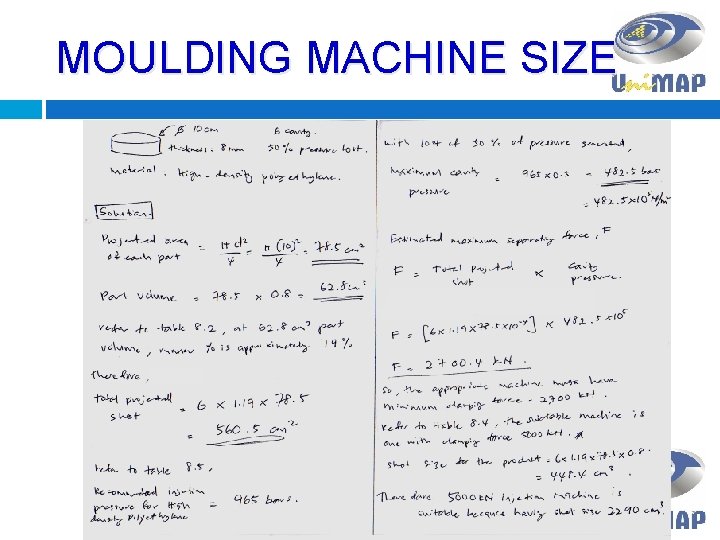 MOULDING MACHINE SIZE
UniMAP
ø 10 cm
6 cavity.
thickness = 8 mm
50% pressure lost.
material = High-density polyethylene.
Solution
Projected area of each part = πd²/4 = π(10)²/4 = 78.5 cm²
Part volume = 78.5 × 0.8 = 62.8 cm³
refer to table 8.2, at 62.8 cm³ part
volume, runner % is approximately
14%
Therefore,
total projected shot = 6 × 1.19 × 78.5
= 560.5 cm²
refer to table 8.5,
Recommended injection pressure for high density polyethylene = 965 bars.
with lost of 50% of pressure generated,
maximum cavity pressure = 965 × 0.5 = 482.5 bar
= 482.5×10⁵ N/m²
Estimated maximum separating force, F
F = Total projected shot × cavity pressure.
F = [6×1.19×78.5×10⁻⁴] × 482.5×10⁵
F = 2700.4 kN.
so, the appropriate machine must have
minimum clamping force = 2700 kN.
refer to table 8.4, the suitable machine is
one with clamping force 5000 kN.
shot size for the product = 6×1.19×78.5×0.8
= 448.4 cm³.
Therefore 5000kN injection machine is
suitable because having shot size 2290 cm³.
UniMAP